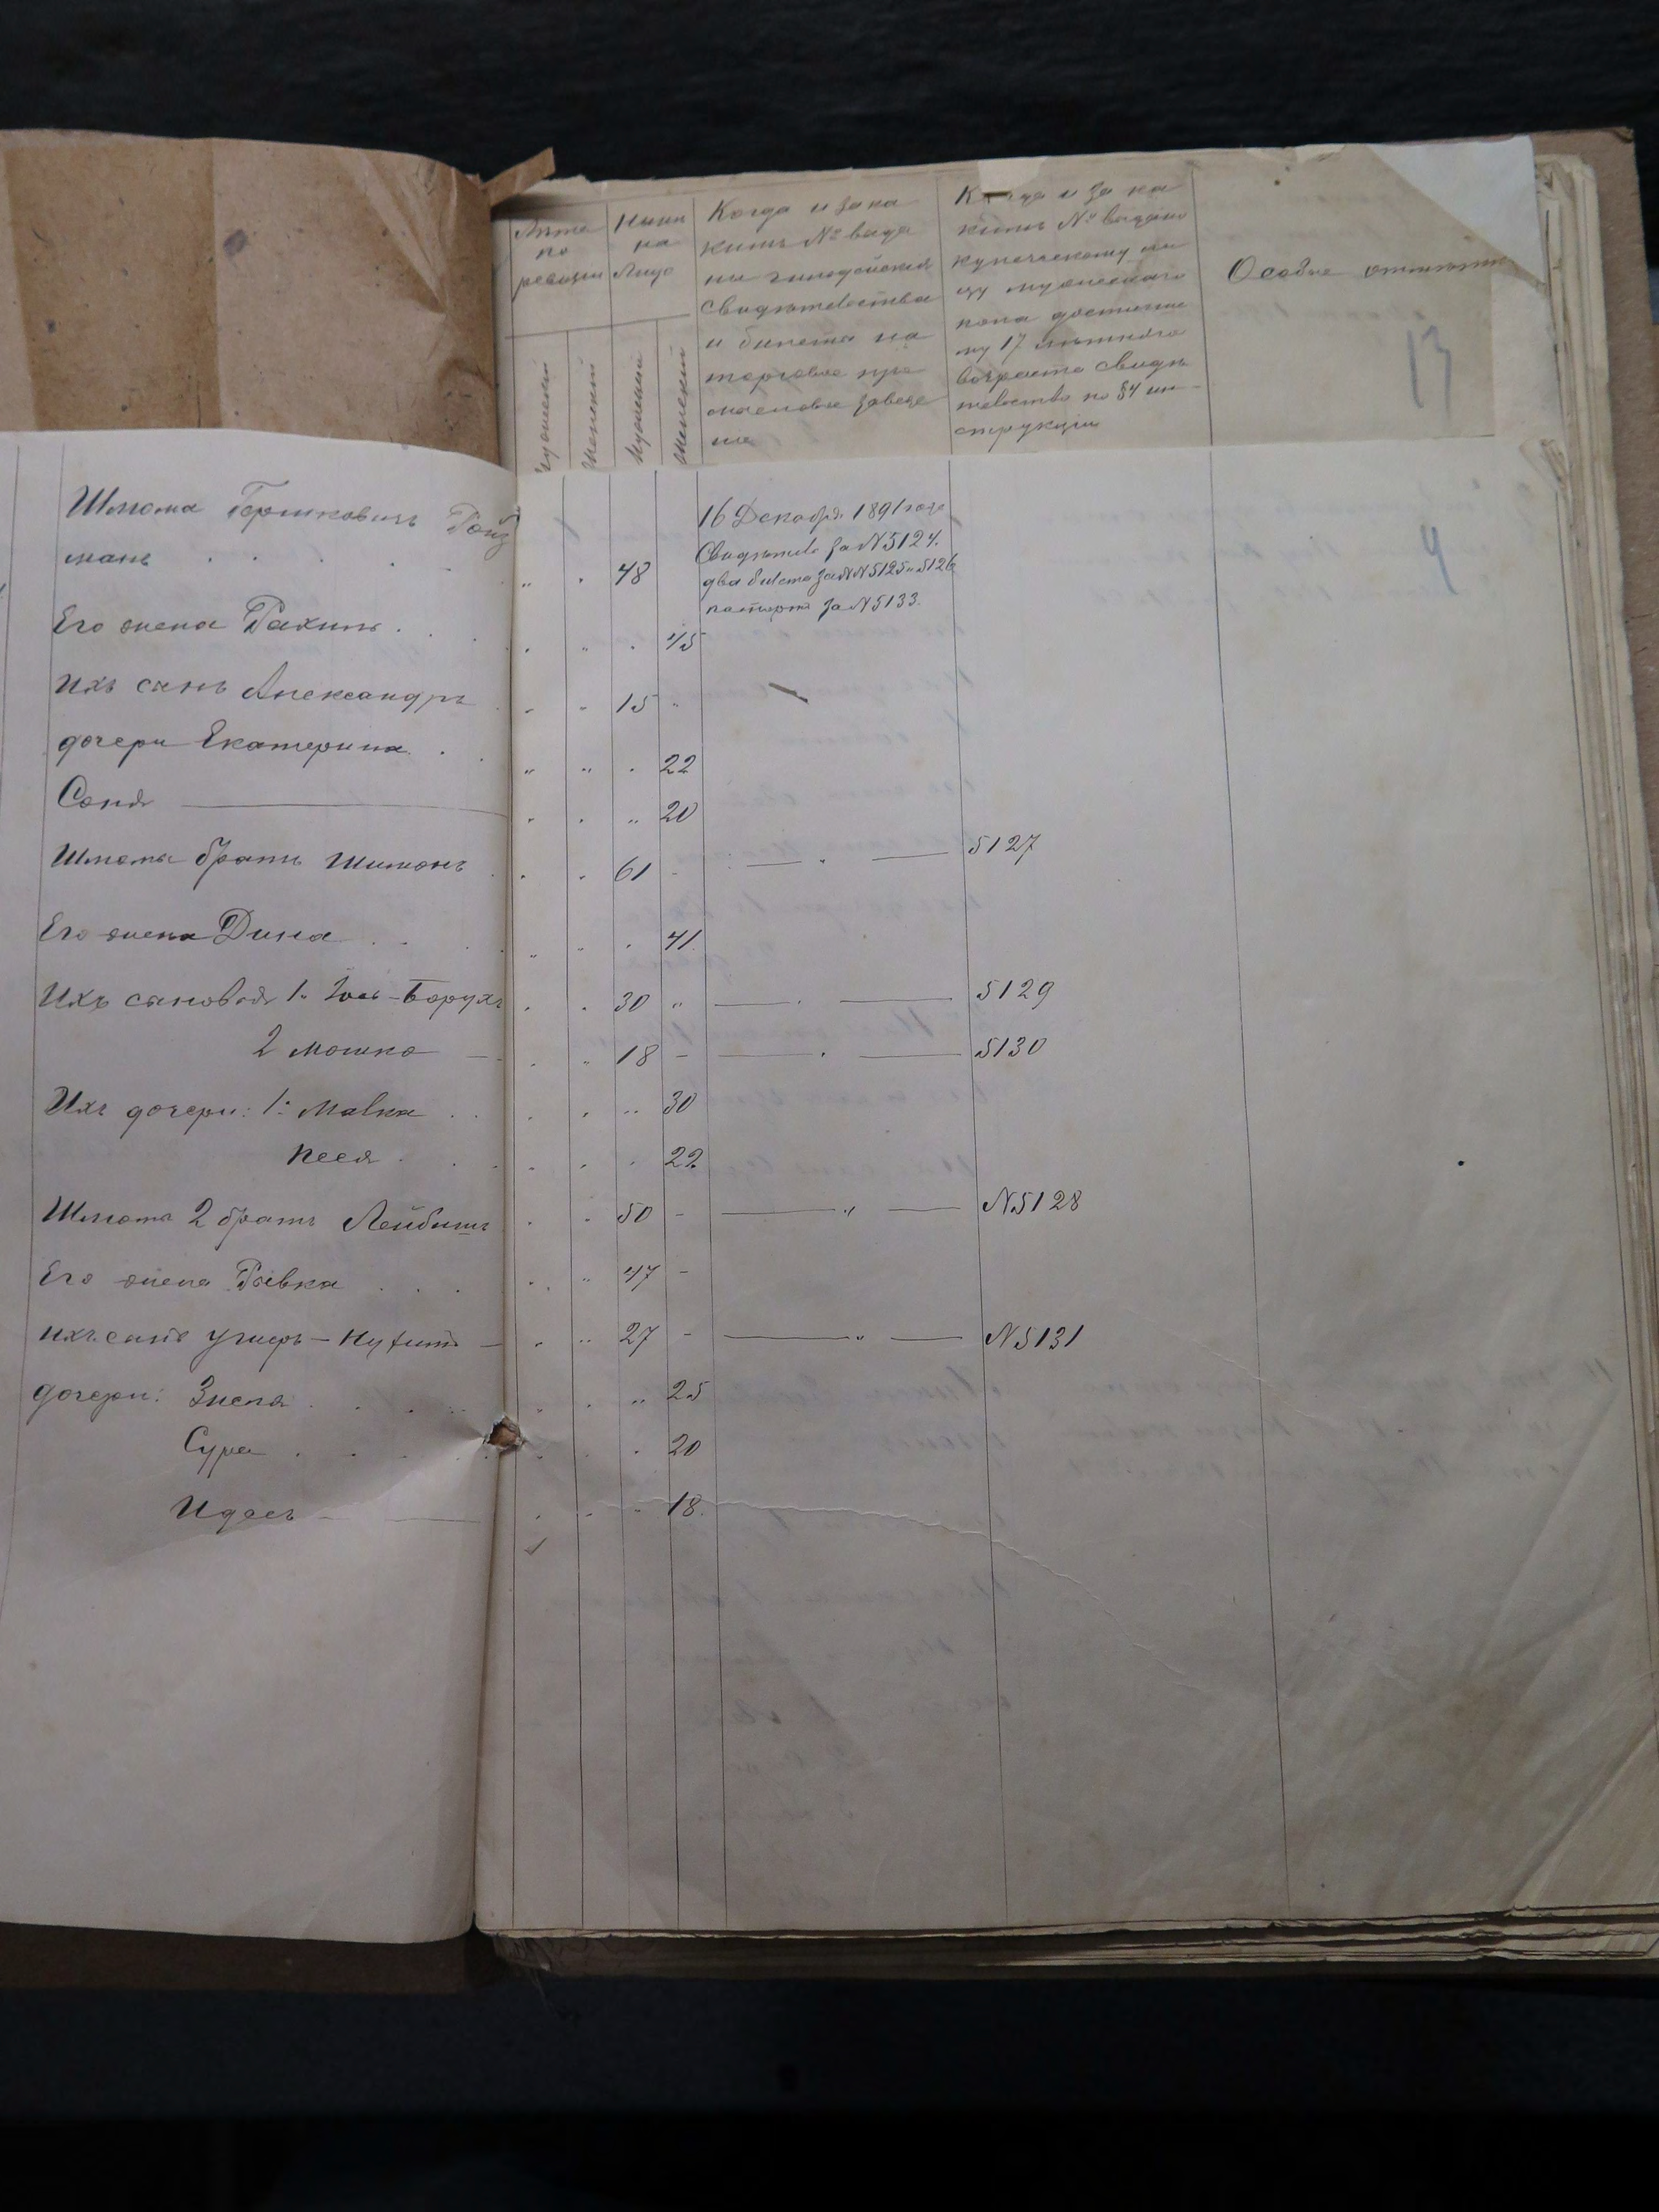 Лѣта по ревизiи
Нынѣ на лицо
Когда и за ка
кимъ № выда
ны гильдейскiя
свидѣтельства
и билеты на
торговое про
мысловые заведе
нiя
Когда и за ка
кимъ № выдано
купеческому ли
цу мужескаго
пола достигше
му 17 лѣтняго
возраста свидѣ
тельство по §4 ин
струкцiи
Особые отмѣтки
Мужескiй
Женскiй
Мужескiй
Женскiй
13
4
Шлема Гершковичъ Ройз
манъ 48
16 Декабря 1891 года
Свидѣтель за N 5124.
два билета за NN 5125 и 5126
паспортъ за N 5133.
Его жена Рахиль 45
Ихъ сынъ Александръ 15
дочери Екатерина 22
Соня 20
Шлемы братъ Шимонъ 61 5127
Его жена Дина 41
Ихъ сыновья 1. Iось-Борухъ 30 5129
2 Мошко 18 5130
Ихъ дочери: 1: Малка 30
Песя 22
Шлемы 2 братъ Лейбишъ 50 N 5128
Его жена Рывка 47
ихъ сынъ 27 N 5131
дочери: 25
Сура 20
Идесъ 18.